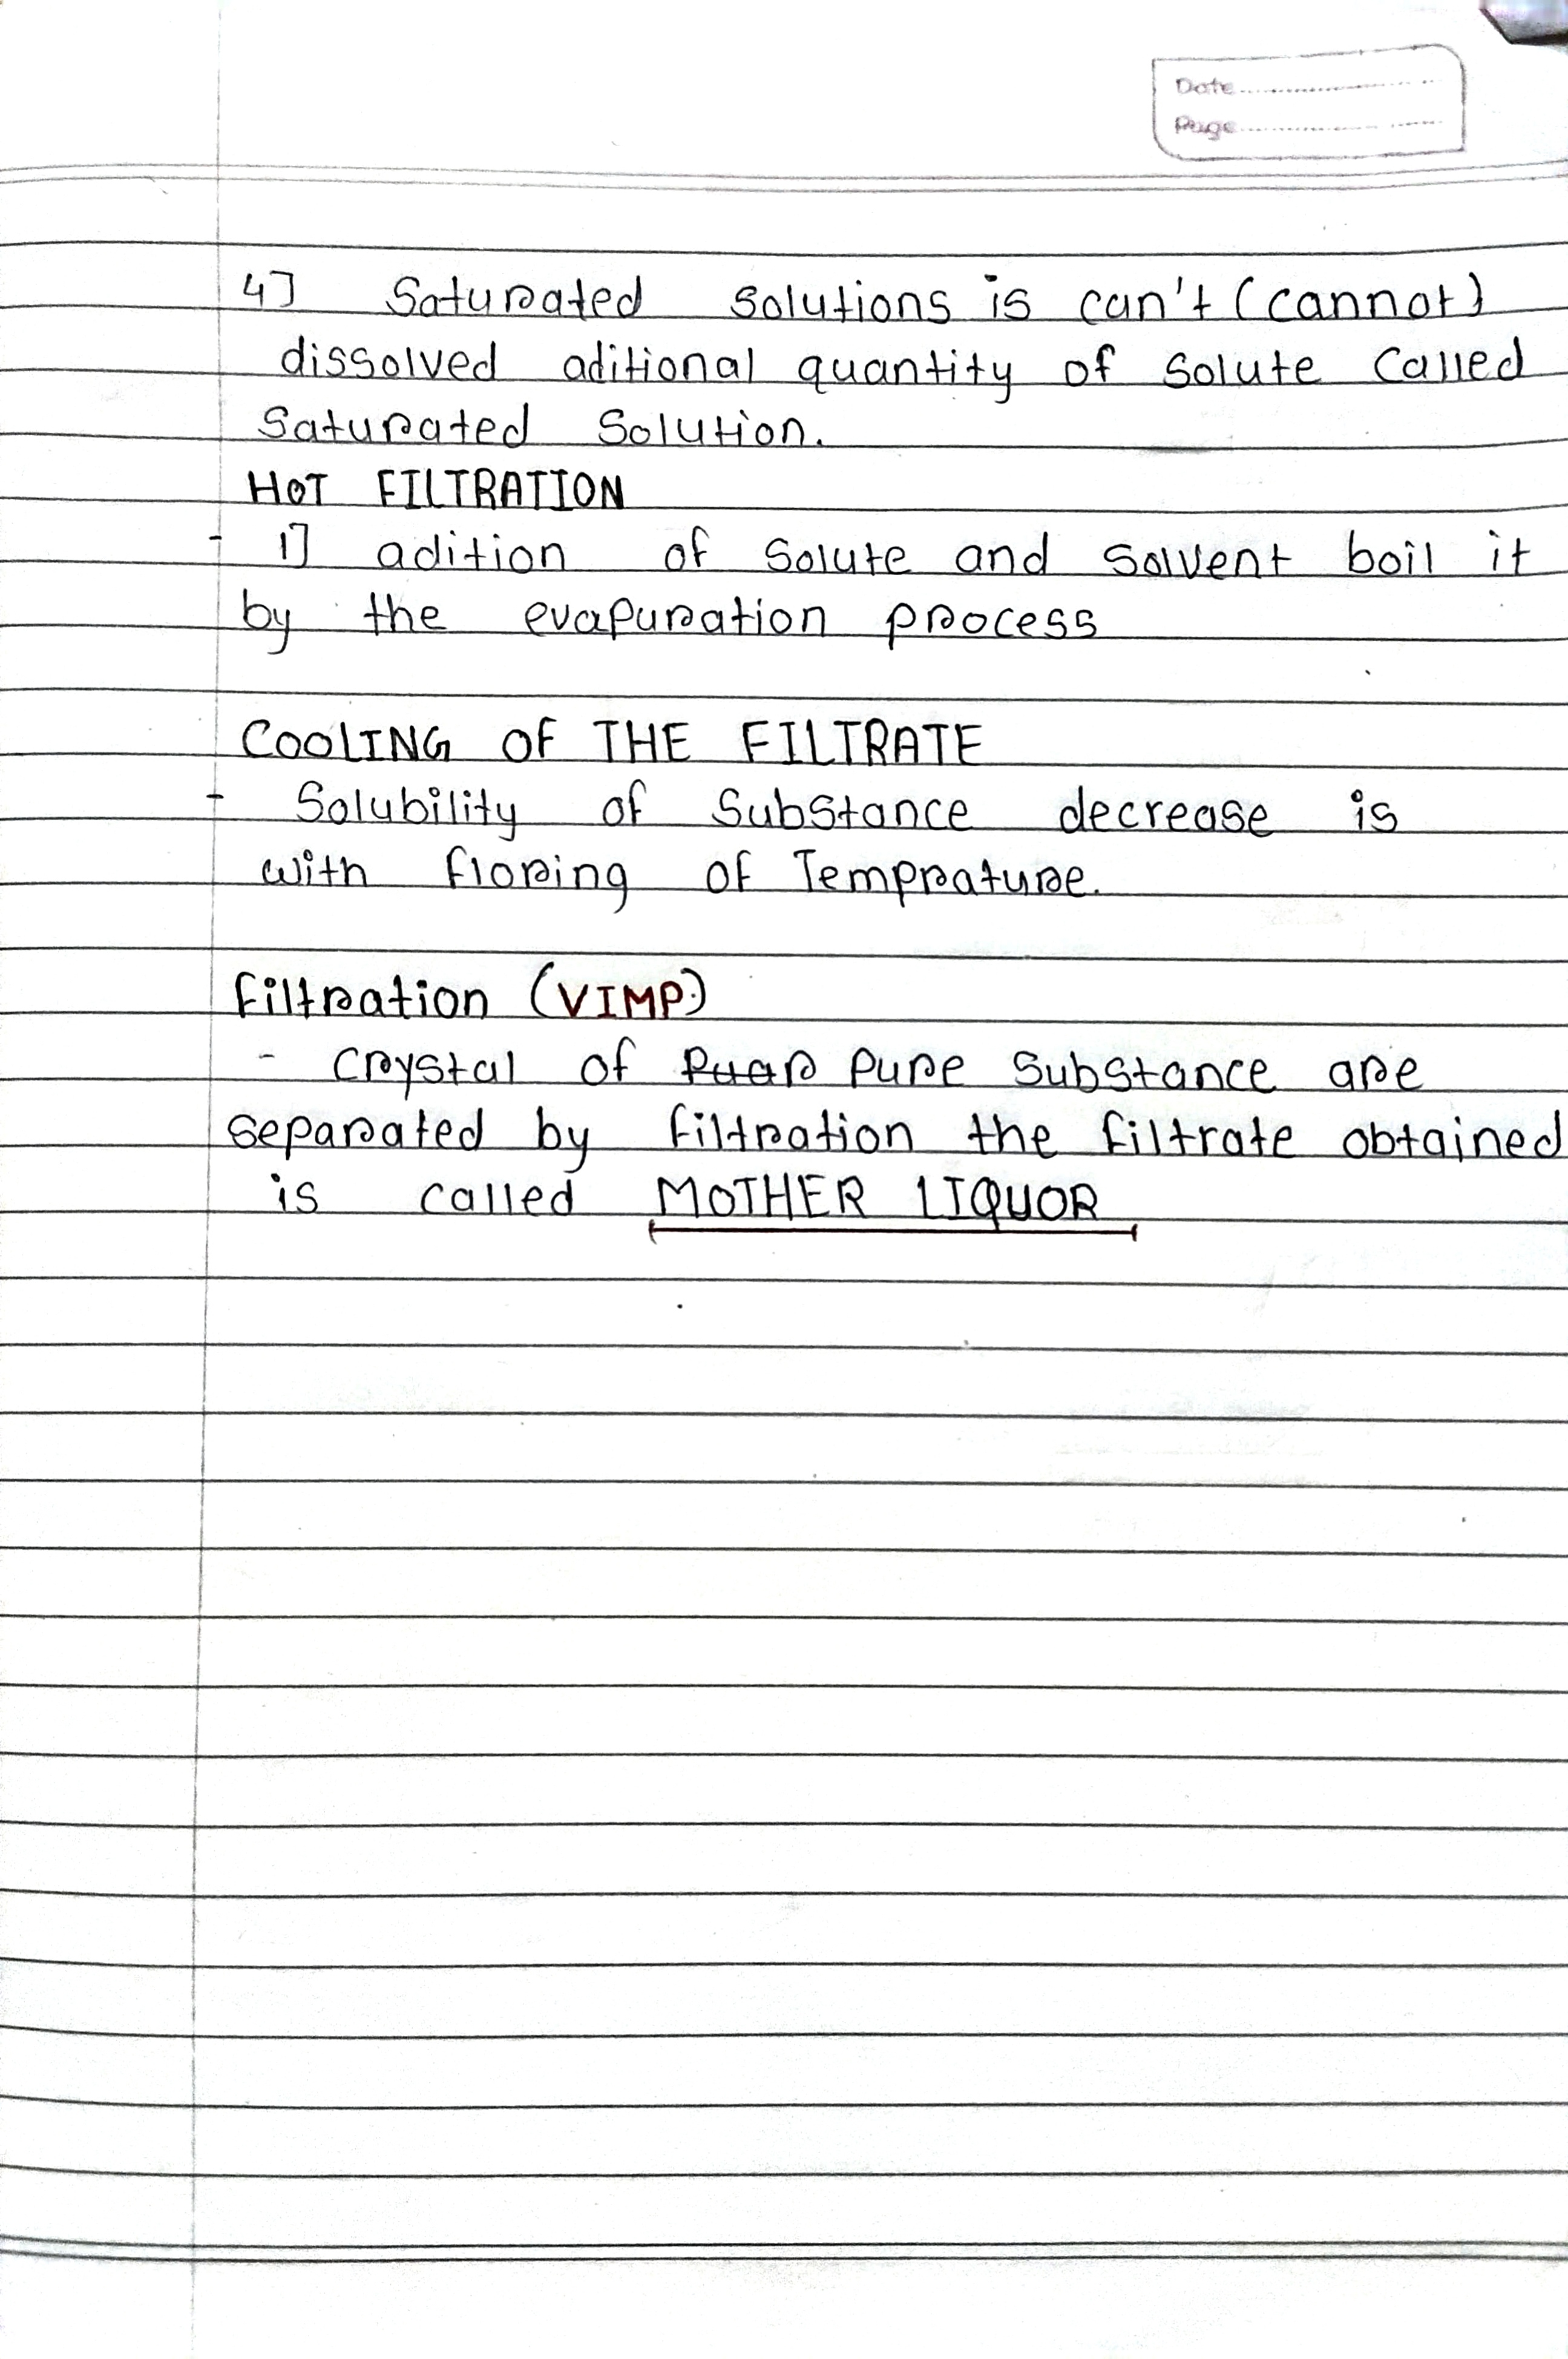 Date
Page
4] Saturated solutions is can't (cannot)
dissolved aditional quantity of solute called
saturated solution.
HOT FILTRATION
- 1] adition of solute and solvent boil it
by the evapuration process
COOLING OF THE FILTRATE
- Solubility of substance decrease is
with floring of Temprature.
Filtration (VIMP.)
- Crystal of Pure substance are
separated by filtration the filtrate obtained
is called MOTHER LIQUOR